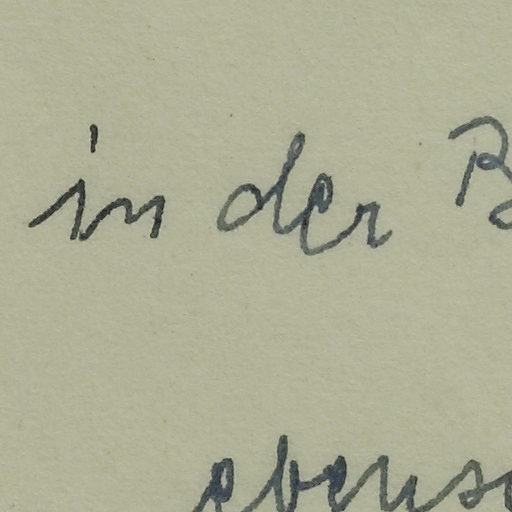 in der B
ebenso